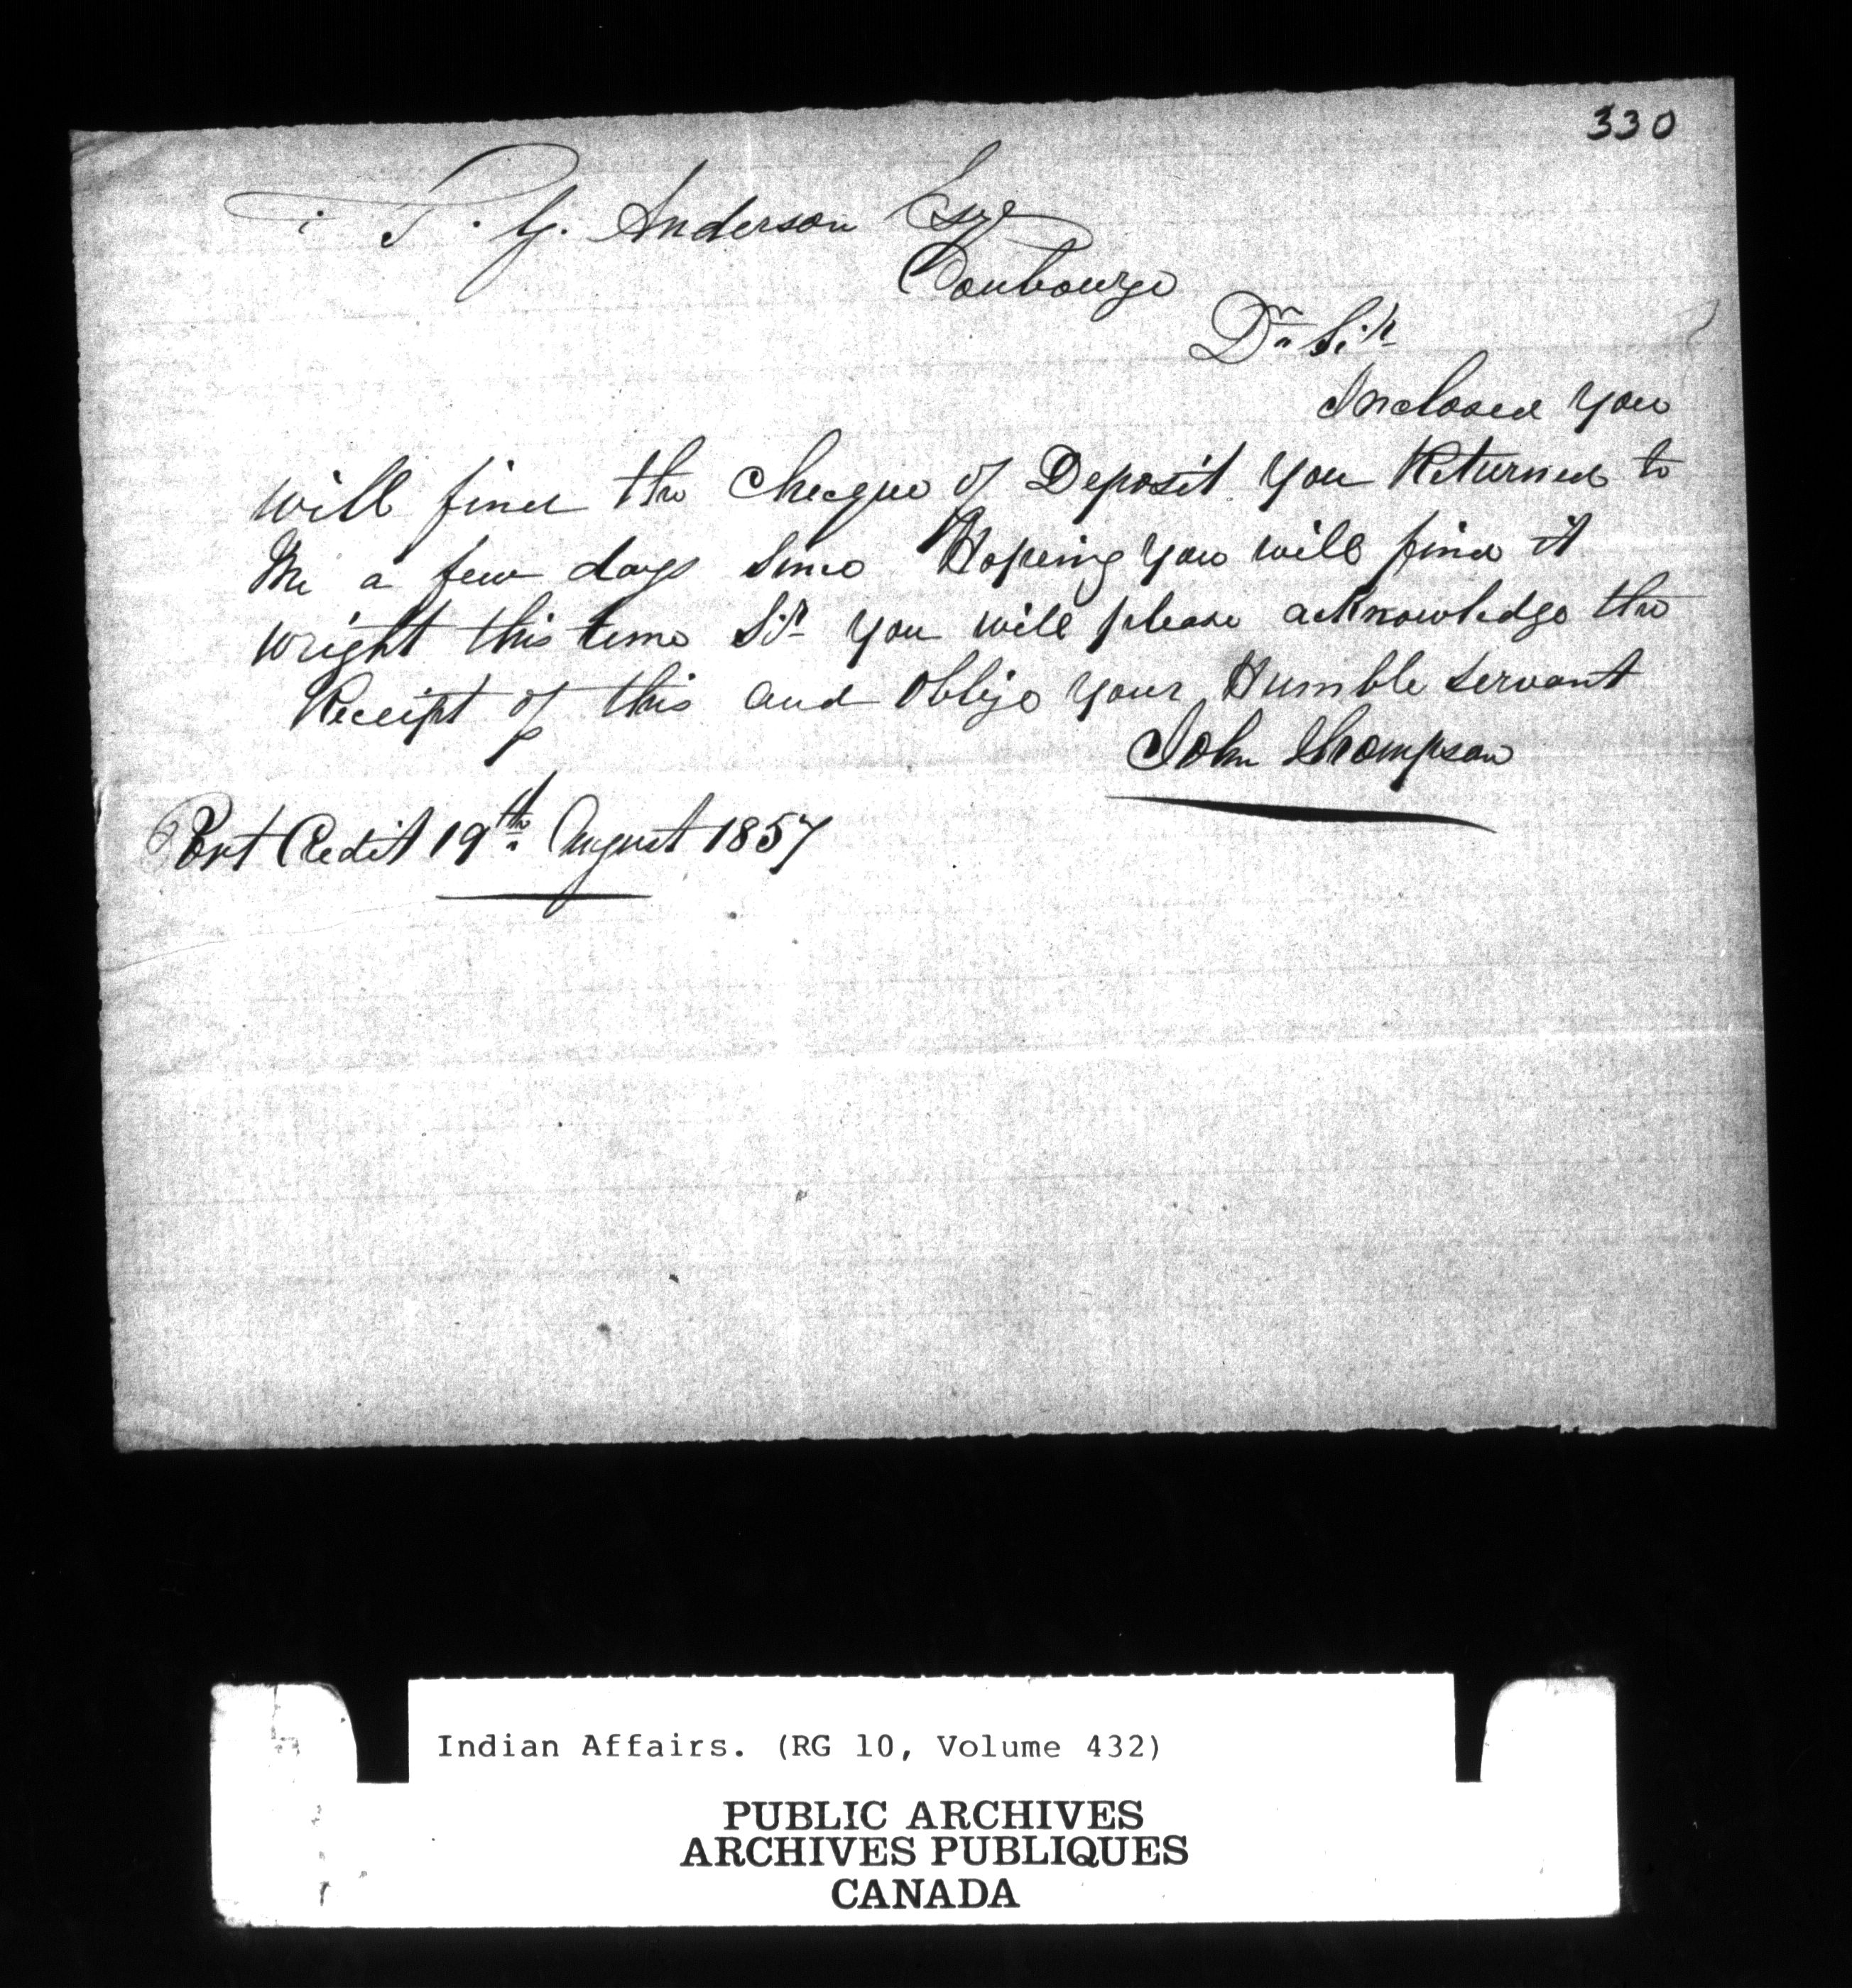 330
T. G. Anderson Esqr
Coubourge
Dr Sir
Inclosed you
will find the Cheque of Deposit you Returned to
Me a few days since Hopeing you will find it
wright this time Sir you will please acknowledge the
Receipt of this and oblige your Humble Servant
John Thompson
Port Credit 19th August 1857
Indian Affairs. (RG 10, Volume 432)
PUBLIC ARCHIVES
ARCHIVES PUBLIQUES
CANADA